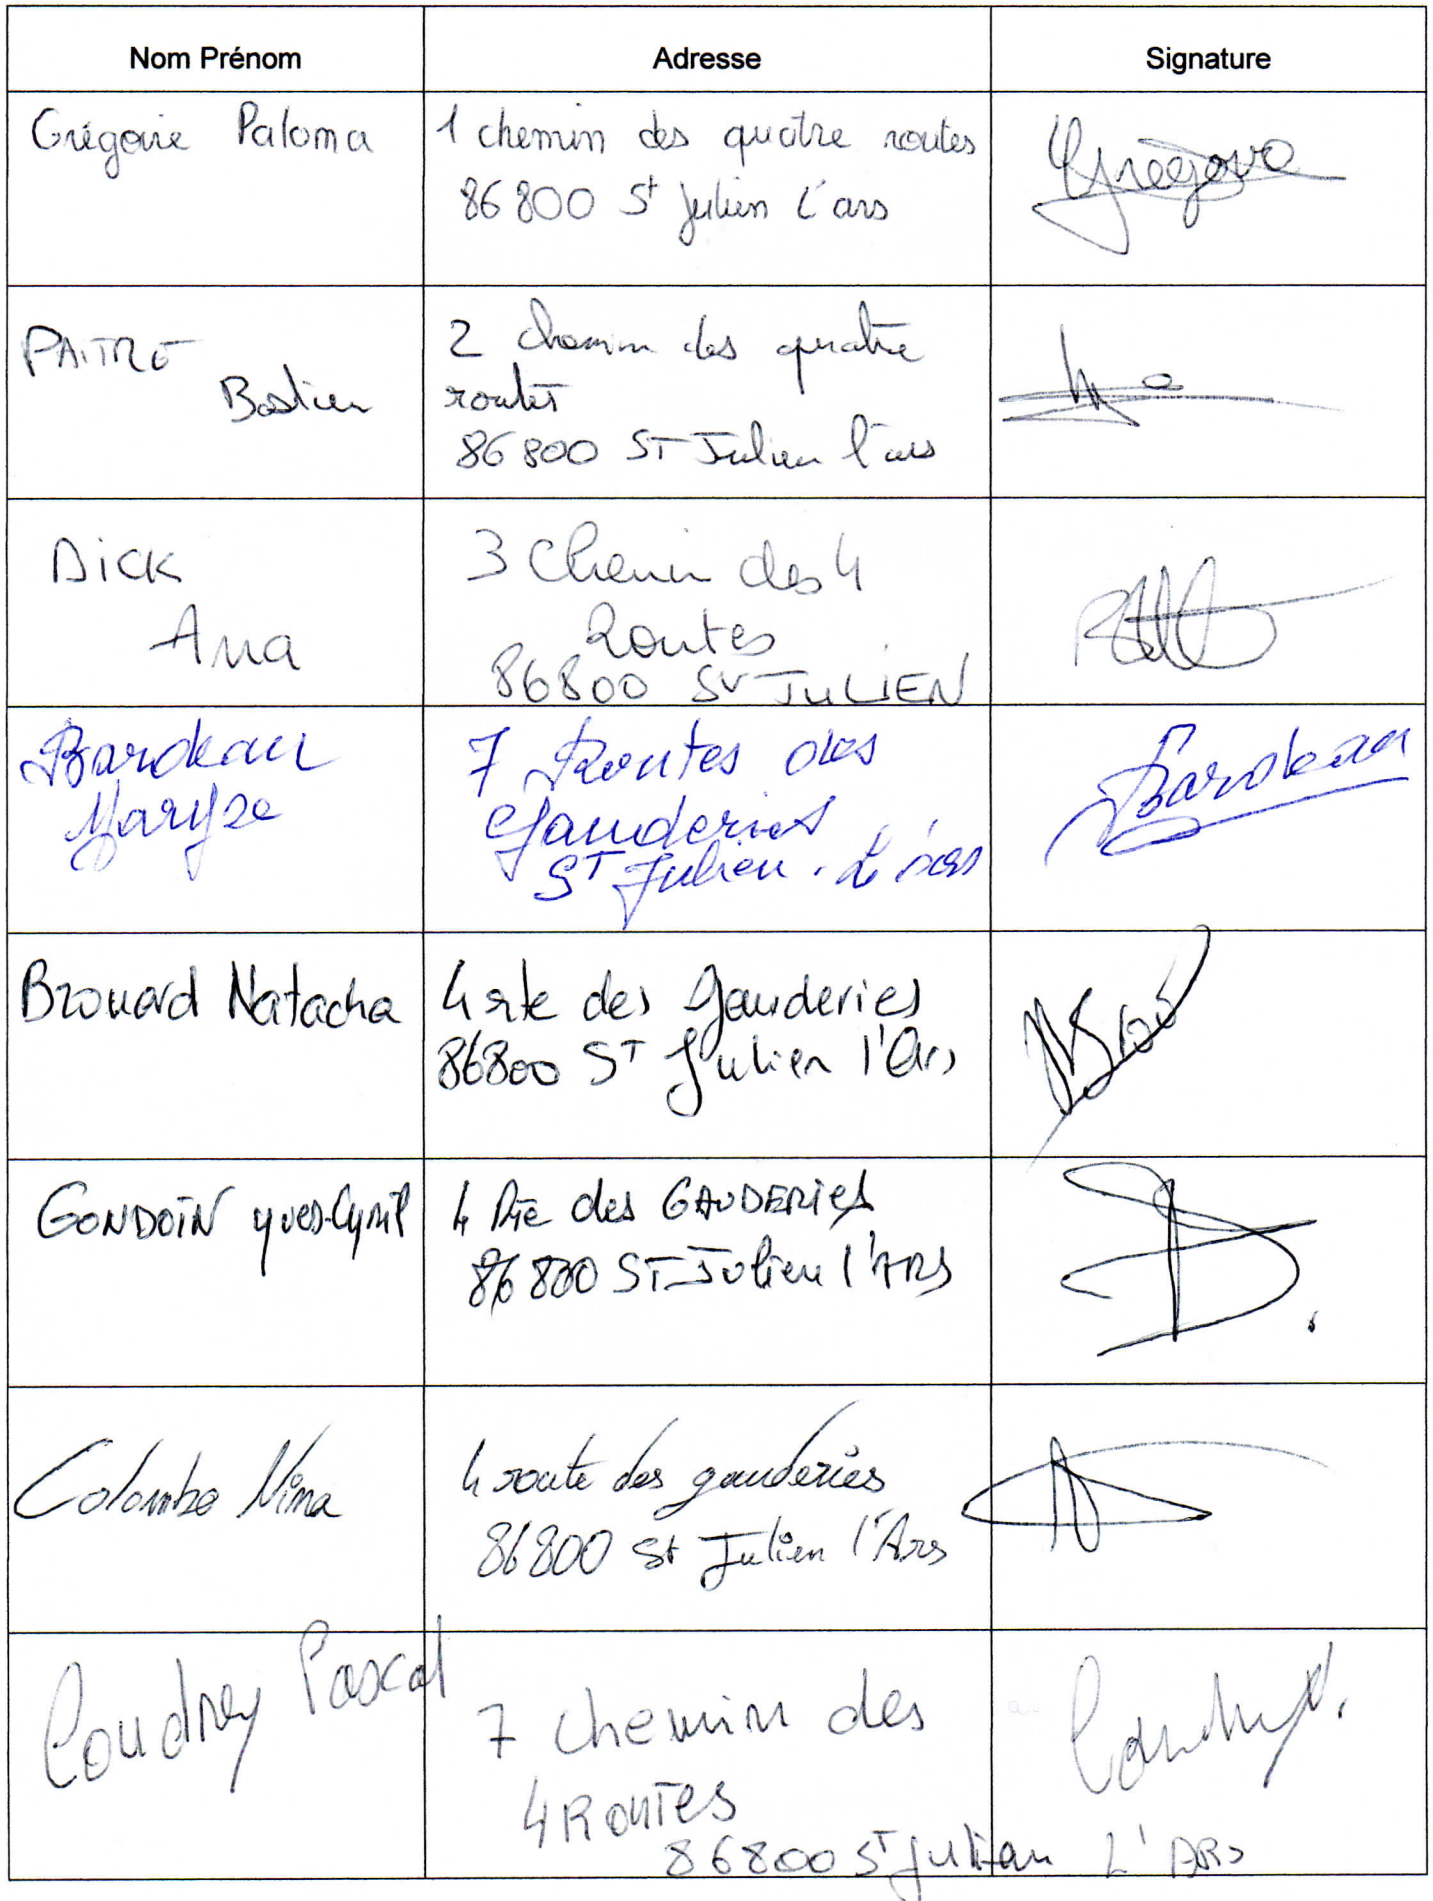 Nom Prénom Adresse Signature
Grégoire Paloma 1 chemin des quatre routes
86800 St Julien l'ars
Grégoire
PAITRE
Bastien
2 chemin des quatre
routes
86800 ST Julien l'ars
Dick
Ana
3 Chemin des 4
Routes
86800 St JULIEN
Bardeau
Maryse
7 Routes des
Gauderies
ST Julien. L'ars
Bardeau
Brouard Natacha 4 rte des Gauderies
86800 ST Julien l'Ars
GONDOIN Yves-Cyril 4 Rte des GAUDERIES
86800 ST Julien l'ARS
Colombe Nina 4 route des gauderies
86800 St Julien l'Ars
Coudrey Pascal
7 chemin des
4 Routes
86800 ST Julien L'ARS